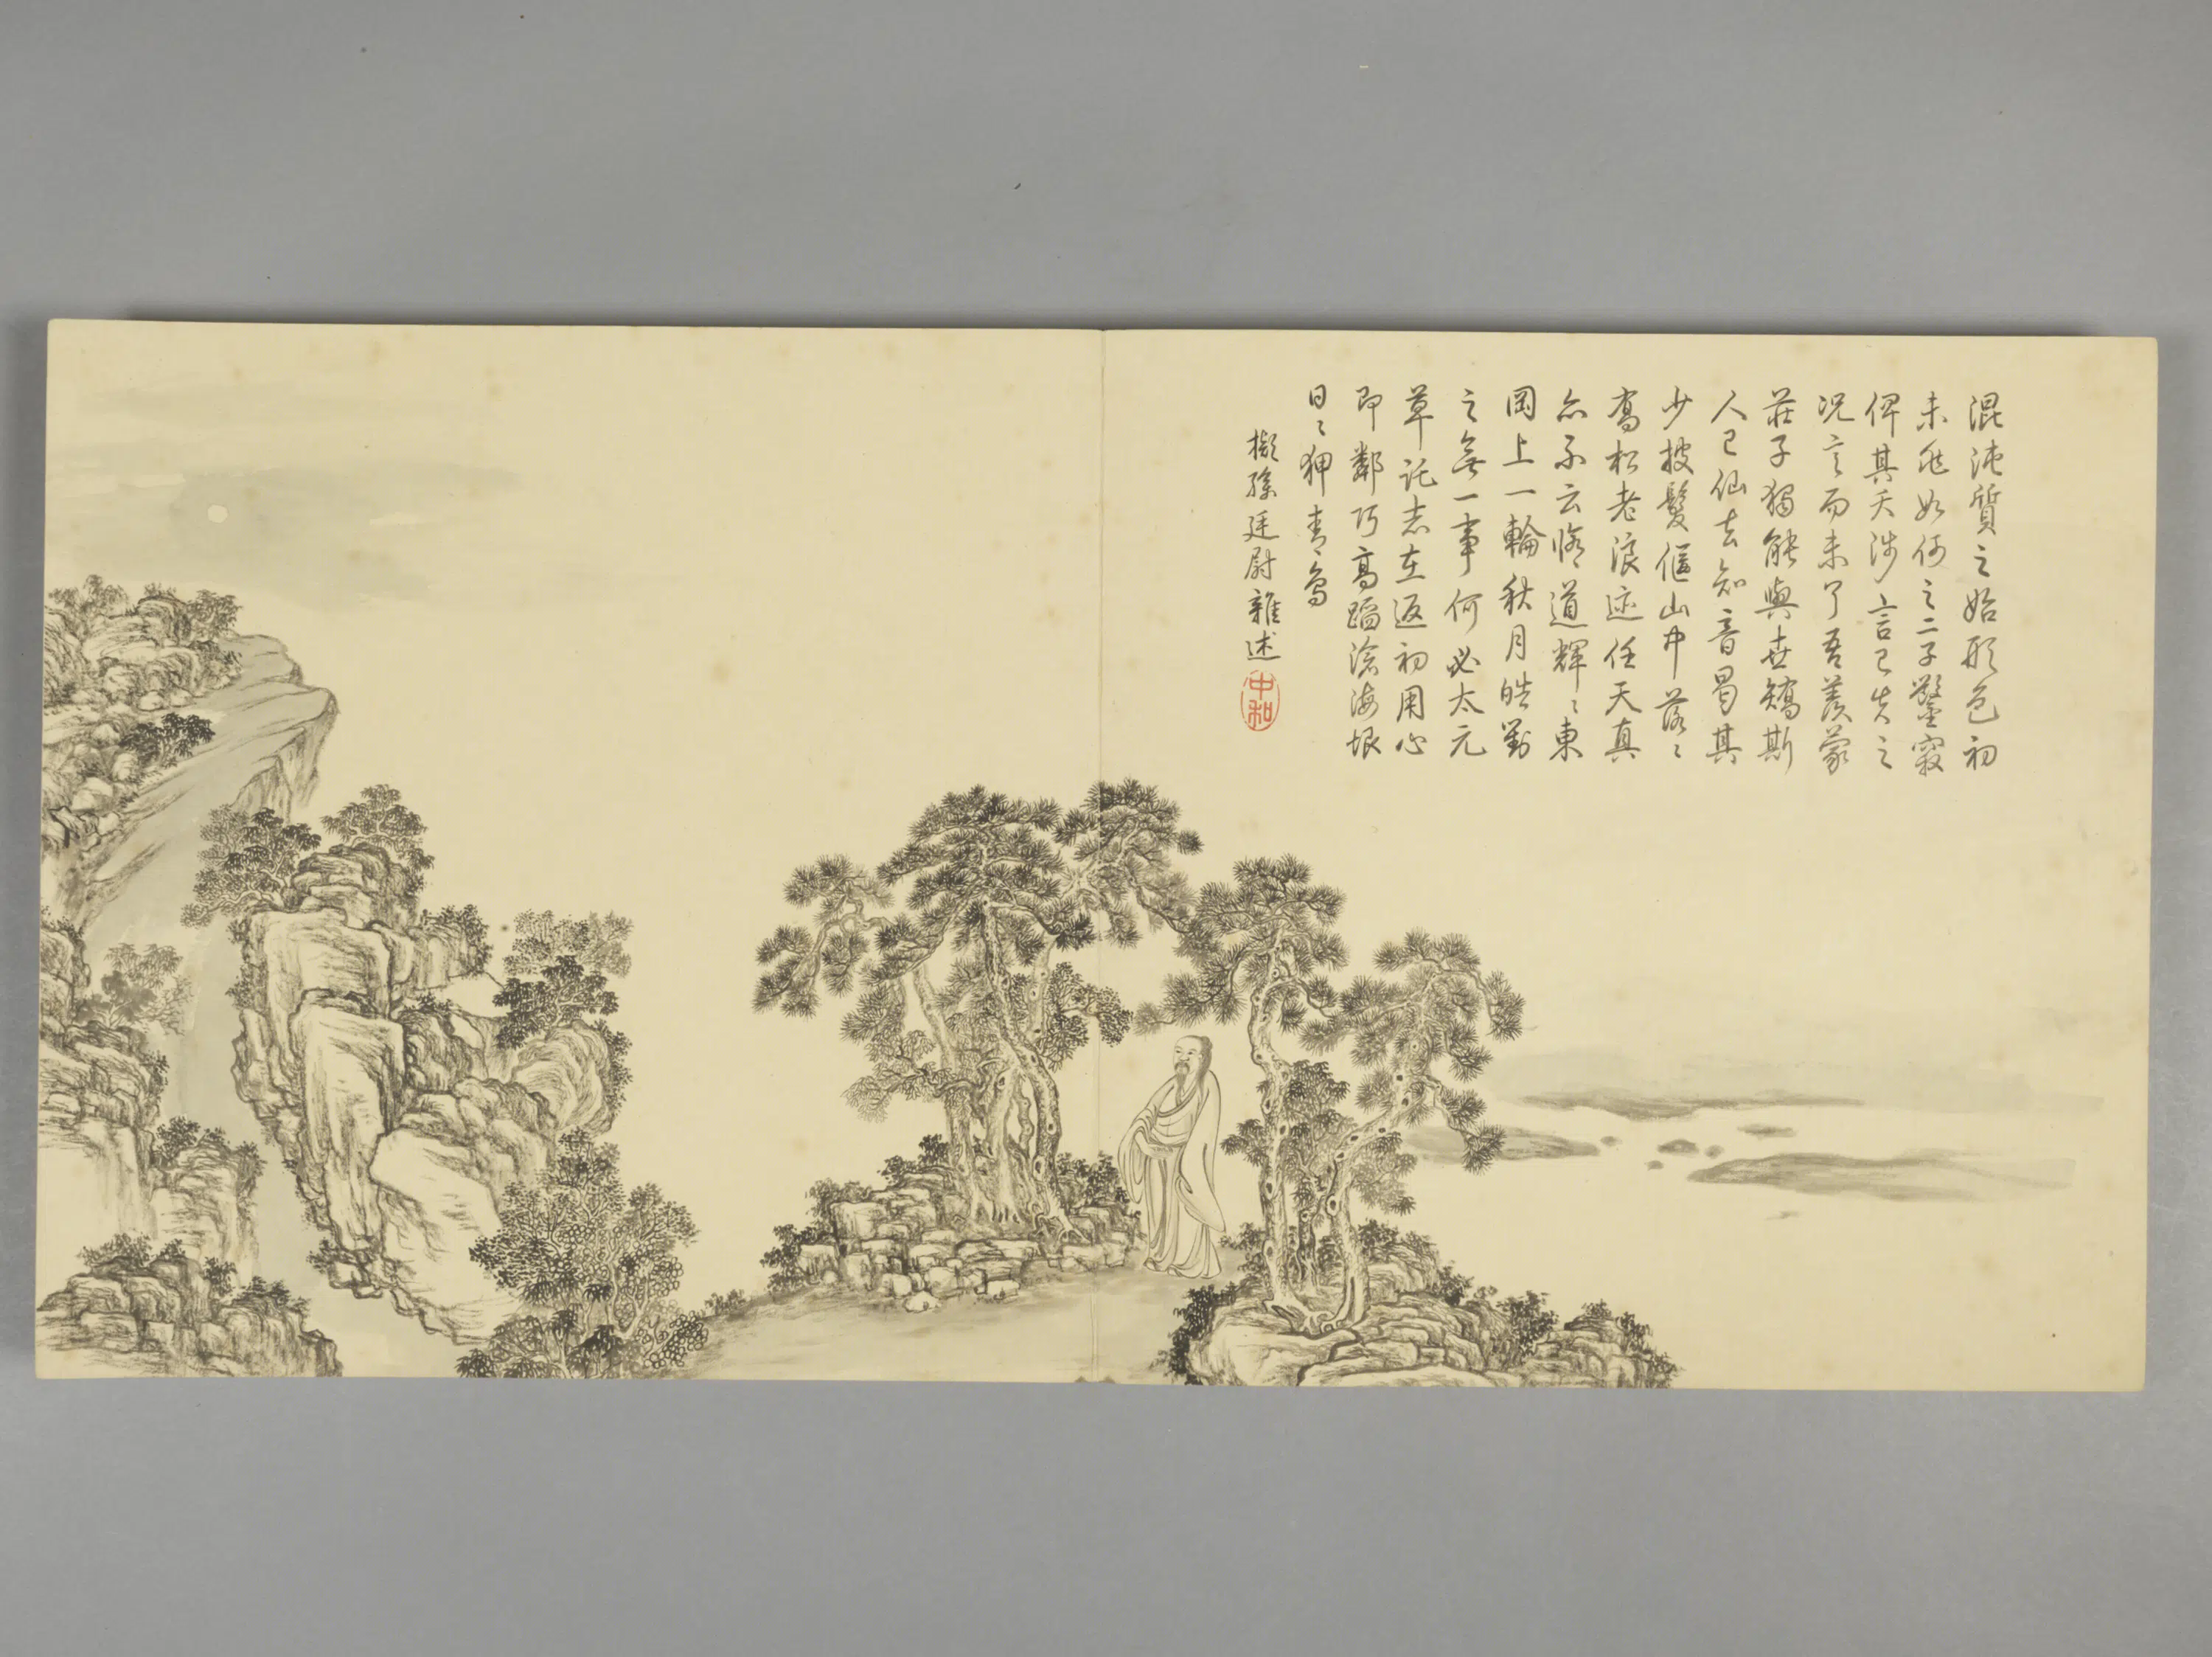 混沌質之始形色初
未兆如何之二子鑿竅
俾其夭涉言已失之
況言而未了吾羨蒙
莊子獨能與世矯斯
人已仙去知音曷其
少披髮傴山中落〻
喬松老浪迹任天真
亦不云脩道輝〻東
岡上一輪秋月皓對
之無一事何必太元
草託志在返初用心
即鄰巧高蹈滄海垠
日〻狎青鳥
擬孫廷尉雜述
中和